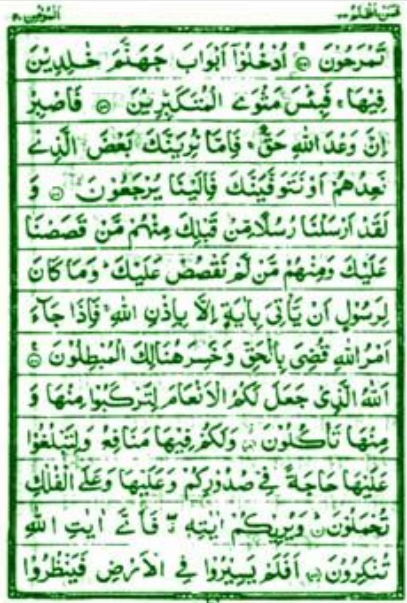 فمن اظلم ٢٤ المؤمن ٤٠
تَمْرَحُوْنَ ۝ اُدْخُلُوْٓا اَبْوَابَ جَهَنَّمَ خٰلِدِيْنَ
فِيْهَا ۚ فَبِئْسَ مَثْوَى الْمُتَكَبِّرِيْنَ ۝ فَاصْبِرْ
اِنَّ وَعْدَ اللّٰهِ حَقٌّ ۚ فَاِمَّا نُرِيَنَّكَ بَعْضَ الَّذِيْ
نَعِدُهُمْ اَوْ نَتَوَفَّيَنَّكَ فَاِلَيْنَا يُرْجَعُوْنَ ۝ وَ
لَقَدْ اَرْسَلْنَا رُسُلًا مِّنْ قَبْلِكَ مِنْهُمْ مَّنْ قَصَصْنَا
عَلَيْكَ وَمِنْهُمْ مَّنْ لَّمْ نَقْصُصْ عَلَيْكَ ؕ وَمَا كَانَ
لِرَسُوْلٍ اَنْ يَّاْتِيَ بِاٰيَةٍ اِلَّا بِاِذْنِ اللّٰهِ ۚ فَاِذَا جَآءَ
اَمْرُ اللّٰهِ قُضِيَ بِالْحَقِّ وَخَسِرَ هُنَالِكَ الْمُبْطِلُوْنَ ۝
اَللّٰهُ الَّذِيْ جَعَلَ لَكُمُ الْاَنْعَامَ لِتَرْكَبُوْا مِنْهَا وَ
مِنْهَا تَاْكُلُوْنَ ۝ وَلَكُمْ فِيْهَا مَنَافِعُ وَلِتَبْلُغُوْا
عَلَيْهَا حَاجَةً فِيْ صُدُوْرِكُمْ وَعَلَيْهَا وَعَلَى الْفُلْكِ
تُحْمَلُوْنَ ۝ وَيُرِيْكُمْ اٰيٰتِهٖ ۖ فَاَيَّ اٰيٰتِ اللّٰهِ
تُنْكِرُوْنَ ۝ اَفَلَمْ يَسِيْرُوْا فِي الْاَرْضِ فَيَنْظُرُوْا